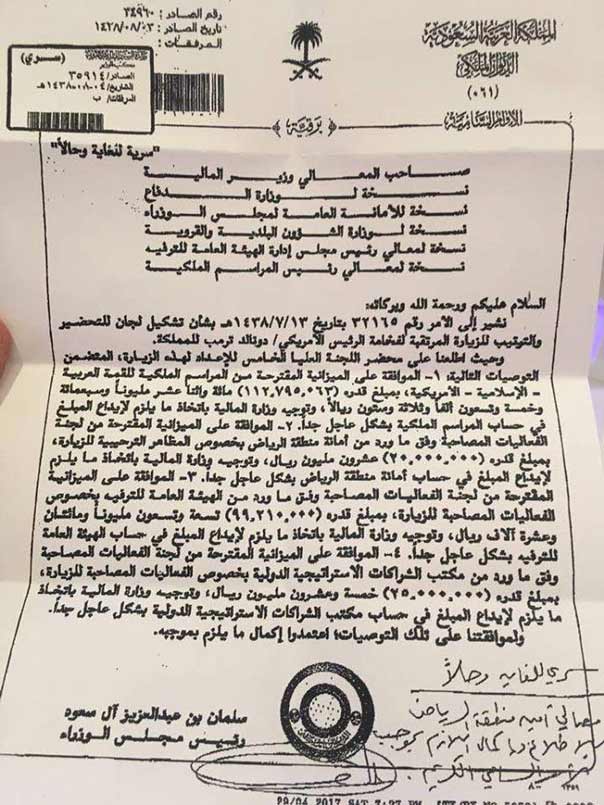 المملكة العربية السعودية
الديوان الملكي
(٠٦١)
الأوامر السامية
رقم الصادر : ٣٤٩٦٠
تاريخ الصادر : ١٤٣٨/٠٨/٠٣
المرفقات :
(سري)
الصادر/ ٣٥٩١٤
التاريخ/ ٠٤-٠٨-١٤٣٨هـ
المرفقات/ ب
برقية
"سرية للغاية وحالاً"
صاحب المعالي وزير المالية
نسخة لوزارة الدفاع
نسخة للأمانة العامة لمجلس الوزراء
نسخة لوزارة الشؤون البلدية والقروية
نسخة لمعالي رئيس مجلس إدارة الهيئة العامة للترفيه
نسخة لمعالي رئيس المراسم الملكية
السلام عليكم ورحمة الله وبركاته:
نشير إلى الأمر رقم ٣٢١٦٥ بتاريخ ١٤٣٨/٧/١٣هـ بشأن تشكيل لجان للتحضير
والترتيب للزيارة المرتقبة لفخامة الرئيس الأمريكي/ دونالد ترمب للمملكة.
وحيث اطلعنا على محضر اللجنة العليا الخامس للإعداد لهذه الزيارة، المتضمن
التوصيات التالية: ١- الموافقة على الميزانية المقترحة من المراسم الملكية للقمة العربية
- الإسلامية - الأمريكية، بمبلغ قدره (١١٢,٧٩٥,٠٦٣) مائة واثنا عشر مليوناً وسبعمائة
وخمسة وتسعون ألفاً وثلاثة وستون ريالاً، وتوجيه وزارة المالية باتخاذ ما يلزم لإيداع المبلغ
في حساب المراسم الملكية بشكل عاجل جداً. ٢- الموافقة على الميزانية المقترحة من لجنة
الفعاليات المصاحبة وفق ما ورد من أمانة منطقة الرياض بخصوص المظاهر الترحيبية للزيارة،
بمبلغ قدره (٢٠,٠٠٠,٠٠٠) عشرون مليون ريال، وتوجيه وزارة المالية باتخاذ ما يلزم
لإيداع المبلغ في حساب أمانة منطقة الرياض بشكل عاجل جداً. ٣- الموافقة على الميزانية
المقترحة من لجنة الفعاليات المصاحبة وفق ما ورد من الهيئة العامة للترفيه بخصوص
الفعاليات المصاحبة للزيارة، بمبلغ قدره (٩٩,٢١٠,٠٠٠) تسعة وتسعون مليوناً ومائتان
وعشرة آلاف ريال، وتوجيه وزارة المالية باتخاذ ما يلزم لإيداع المبلغ في حساب الهيئة العامة
للترفيه بشكل عاجل جداً. ٤- الموافقة على الميزانية المقترحة من لجنة الفعاليات المصاحبة
وفق ما ورد من مكتب الشراكات الاستراتيجية الدولية بخصوص الفعاليات المصاحبة للزيارة،
بمبلغ قدره (٢٥,٠٠٠,٠٠٠) خمسة وعشرون مليون ريال، وتوجيه وزارة المالية باتخاذ
ما يلزم لإيداع المبلغ في حساب مكتب الشراكات الاستراتيجية الدولية بشكل عاجل جداً.
ولموافقتنا على تلك التوصيات؛ اعتمدوا إكمال ما يلزم بموجبه.
سلمان بن عبدالعزيز آل سعود
رئيس مجلس الوزراء
سري للغاية وحالاً
معالي أمين منطقة الرياض
للاطلاع وإكمال اللازم بموجب
الأمر السامي الكريم
29/04 2017 SAT 7:27 PM